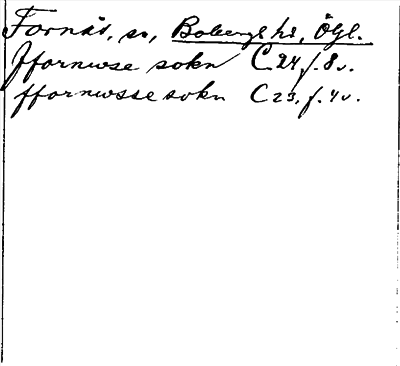 Fornås, sn, Bobergs hd, Ögl.
Ffornwse sokn C 24, f. 8 v.
ffornwsse sokn C 23, f. 4 v.